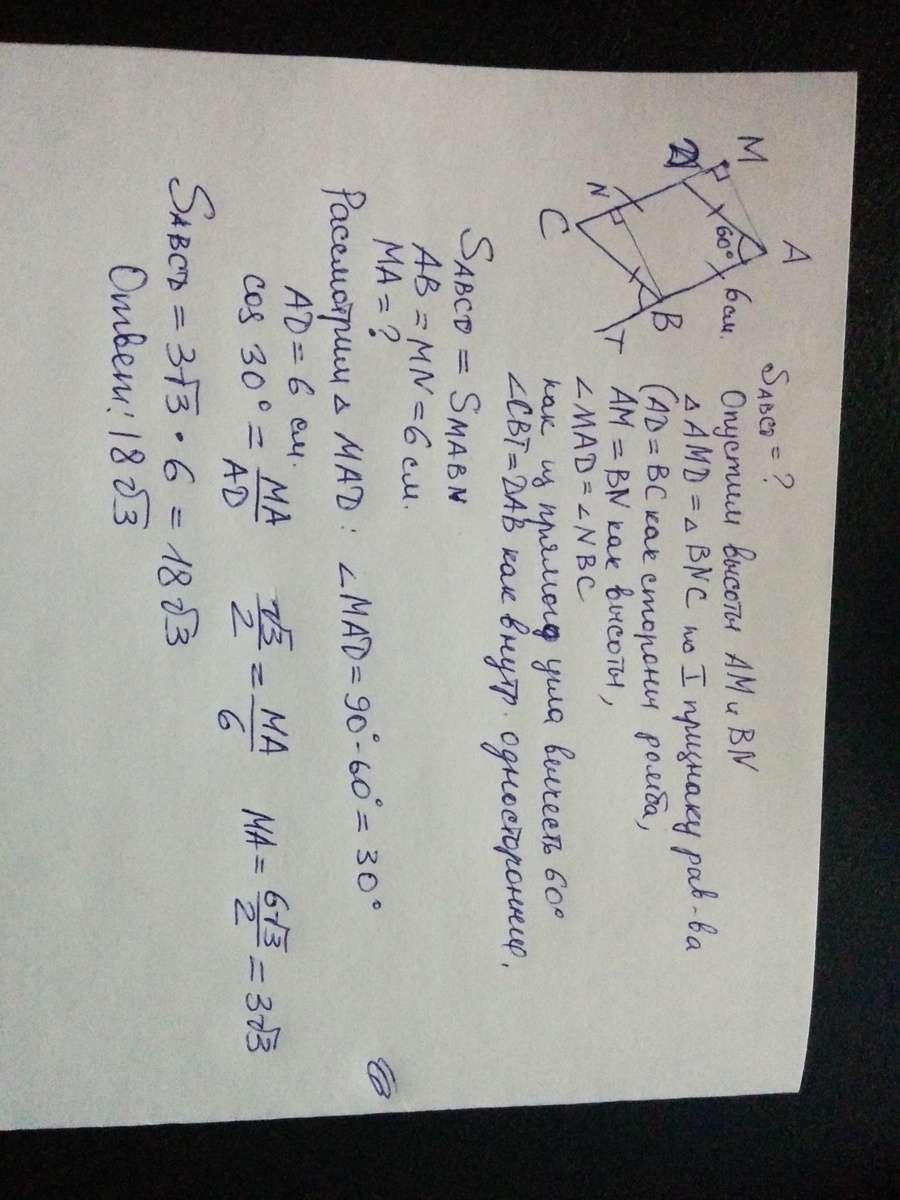 M
A
D
60°
6 см.
N
C
B
T
SABCD = ?
Опустим высоты AM и BN
△AMD = △BNC по I признаку рав-ва
(AD = BC как стороны ромба,
AM = BN как высоты,
∠MAD = ∠NBC
как из прямого угла вычесть 60°
∠CBT = DAB как внутр. односторонние.
SABCD = SMABN
AB = MN = 6 см.
MA = ?
Рассмотрим △ MAD: ∠MAD = 90° - 60° = 30°
AD = 6 см.
cos 30° = MA/AD √3/2 = MA/6 MA = 6√3/2 = 3√3
SABCD = 3√3 · 6 = 18√3
Ответ: 18√3